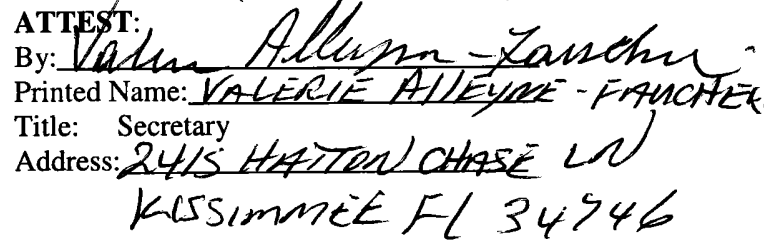 ATTEST:
By: Valerie Alleyne-Faucher
Printed Name: VALERIE AllEYNE-FAUCHER
Title: Secretary
Address: 2415 HATTON CHASE LN
KISSIMMEE Fl 34746